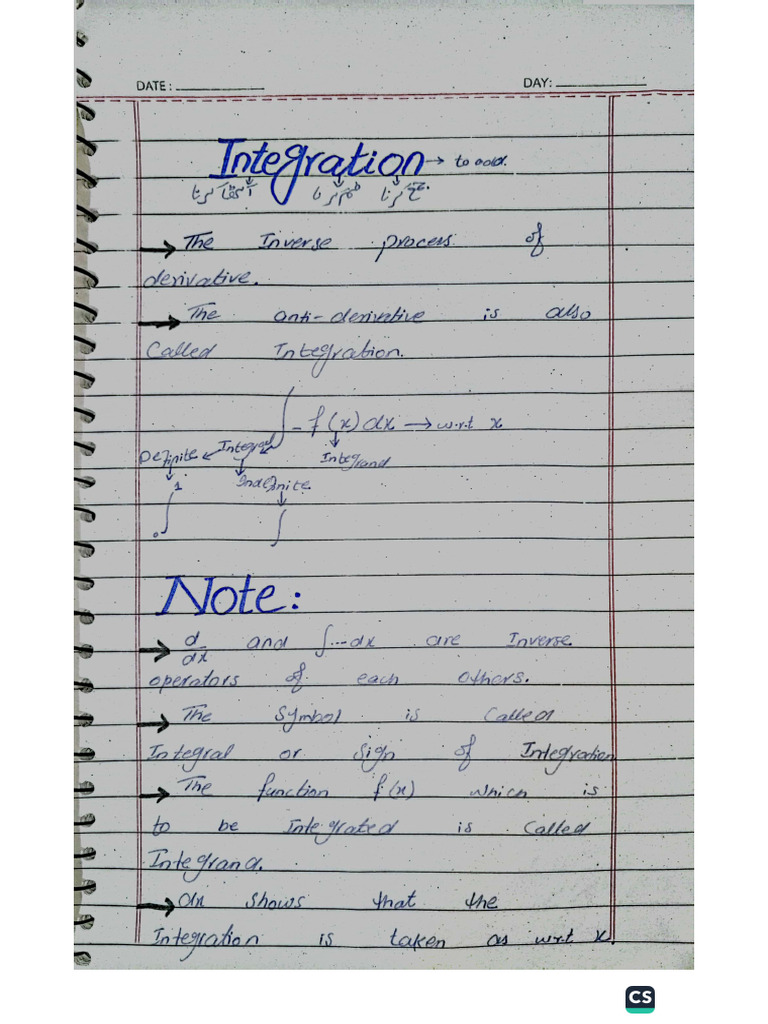 DATE: DAY:
Integration → to add.
اکٹھا کرنا ضم کرنا جمع کرنا
→ The Inverse process of
derivative.
→ The anti-derivative is also
Called Integration.
∫ f(x) dx → w.r.t x
Definite ← Integral Integrand
1 Indefinite
0 ∫ ∫
Note:
→ d/dx and ∫...dx are Inverse
operators of each others.
→ The Symbol is Called
Integral or Sign of Integration
→ The function f(x) which is
to be Integrated is Called
Integrand.
→ dx shows that the
Integration is taken as w.r.t x.
CS